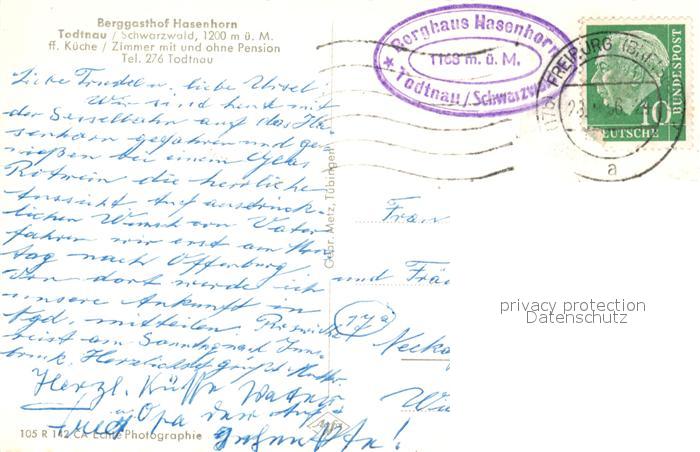 Berggasthof Hasenhorn
Todtnau / Schwarzwald, 1200 m ü. M.
ff. Küche / Zimmer mit und ohne Pension
Tel. 276 Todtnau
Berghaus Hasenhorn
1158 m. ü. M.
Todtnau / Schwarzw
FREIBURG
10
DEUTSCHE
BUNDESPOST
a
liebe Ursel
Wir sind heut mit
der Sesselbahn auf das Ha-
senhorn gefahren und ge-
nießen bei einem Glas
Rotwein die herrliche
Aussicht. Auf ausdrück-
lichen Wunsch von Vater
fahren wir erst am Mon-
tag nach Offenburg
Von dort werde ich
unsere Ankunft in
mitteilen.
reist am Sonntag nach Inns-
bruck. Herzlichst grüßt
Herzl. Küsse
Opa der
Gebr. Metz, Tübingen
Frau
und
17a
privacy protection
Datenschutz
105 R 142 CA Echte Photographie